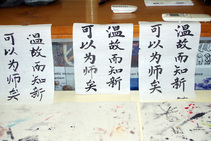 温故而知新
可以为师矣
温故而知新
可以为师矣
温故而知新
可以为师矣